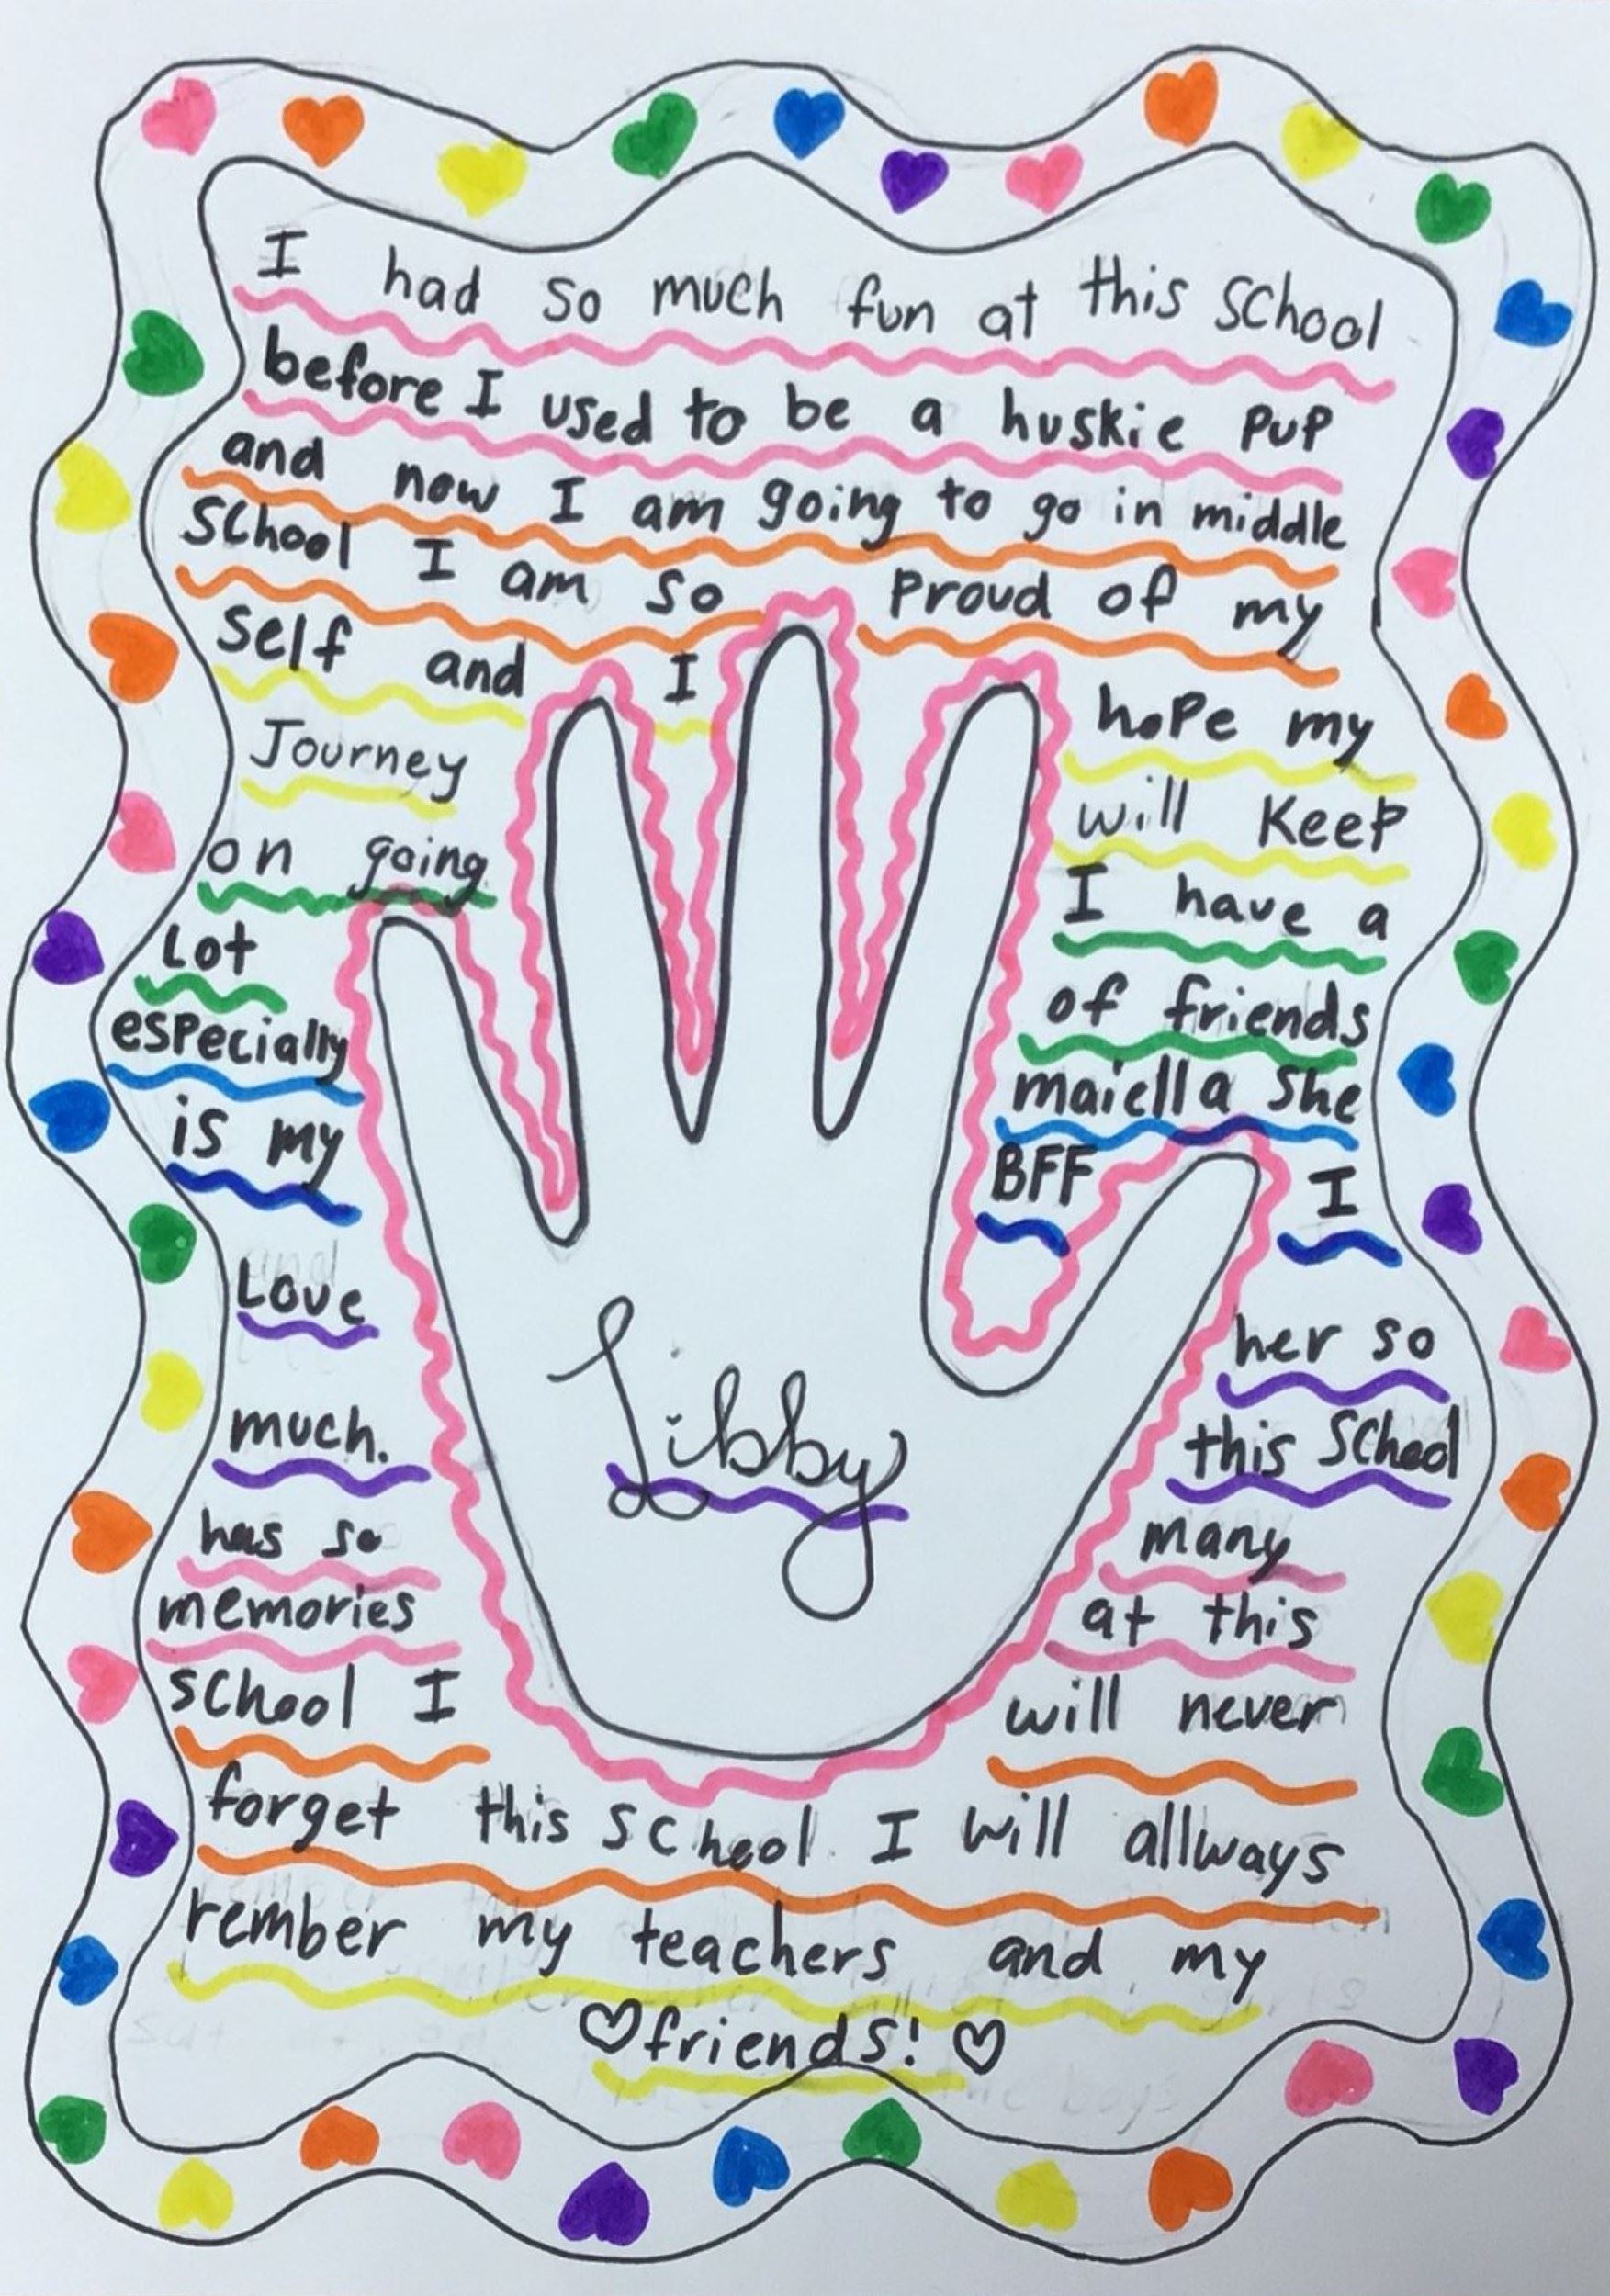 I had so much fun at this school
before I used to be a huskie pup
and now I am going to go in middle
school I am so proud of my
self and I hope my
Journey will keep
on going I have a
Lot of friends
especially maiella she
is my BFF I
Love her so
much. this school
has so many
memories at this
school I will never
forget this school. I will allways
rember my teachers and my
♡friends! ♡
Libby